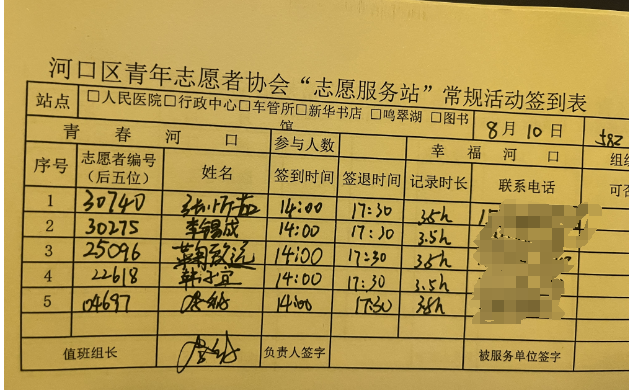 河口区青年志愿者协会“志愿服务站”常规活动签到表
站点 □人民医院□行政中心□车管所□新华书店 □鸣翠湖 □图书馆 8月10日
青春河口 参与人数 幸福河口
序号 志愿者编号（后五位） 姓名 签到时间 签退时间 记录时长 联系电话
1 30740 14:00 17:30 3.5h
2 30275 李锡成 14:00 17:30 3.5h
3 25096 14:00 17:30 3.5h
4 22618 14:00 17:30 3.5h
5 04697 14:00 17:30 3.5h
值班组长 负责人签字 被服务单位签字